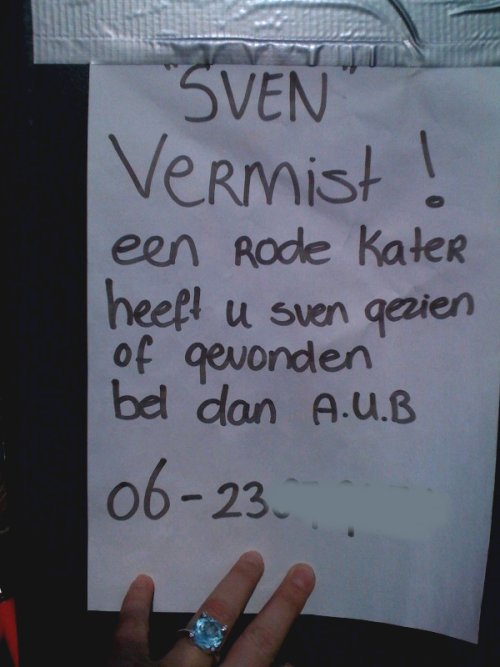 "SVEN"
Vermist!
een Rode Kater
heeft u sven gezien
of gevonden
bel dan A.U.B
06-23